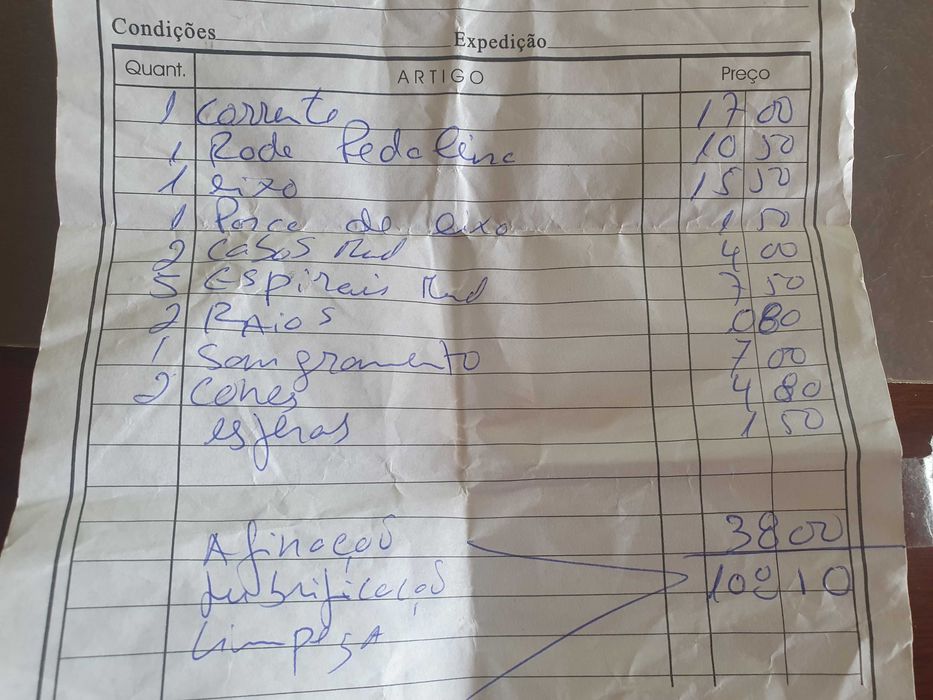 Condições Expedição
Quant. ARTIGO Preço
1 corrente 17 00
1 Roda Pedaleira 10 50
1 eixo 15 50
1 Porca de eixo 1 50
2 casos Rud 4 00
5 Espirais Rud 7 50
2 RAios 080
1 Sangramento 7 00
2 cones 4 80
esferas 1 50
Afinação 3800
Lubrificação 108 10
LimpezA